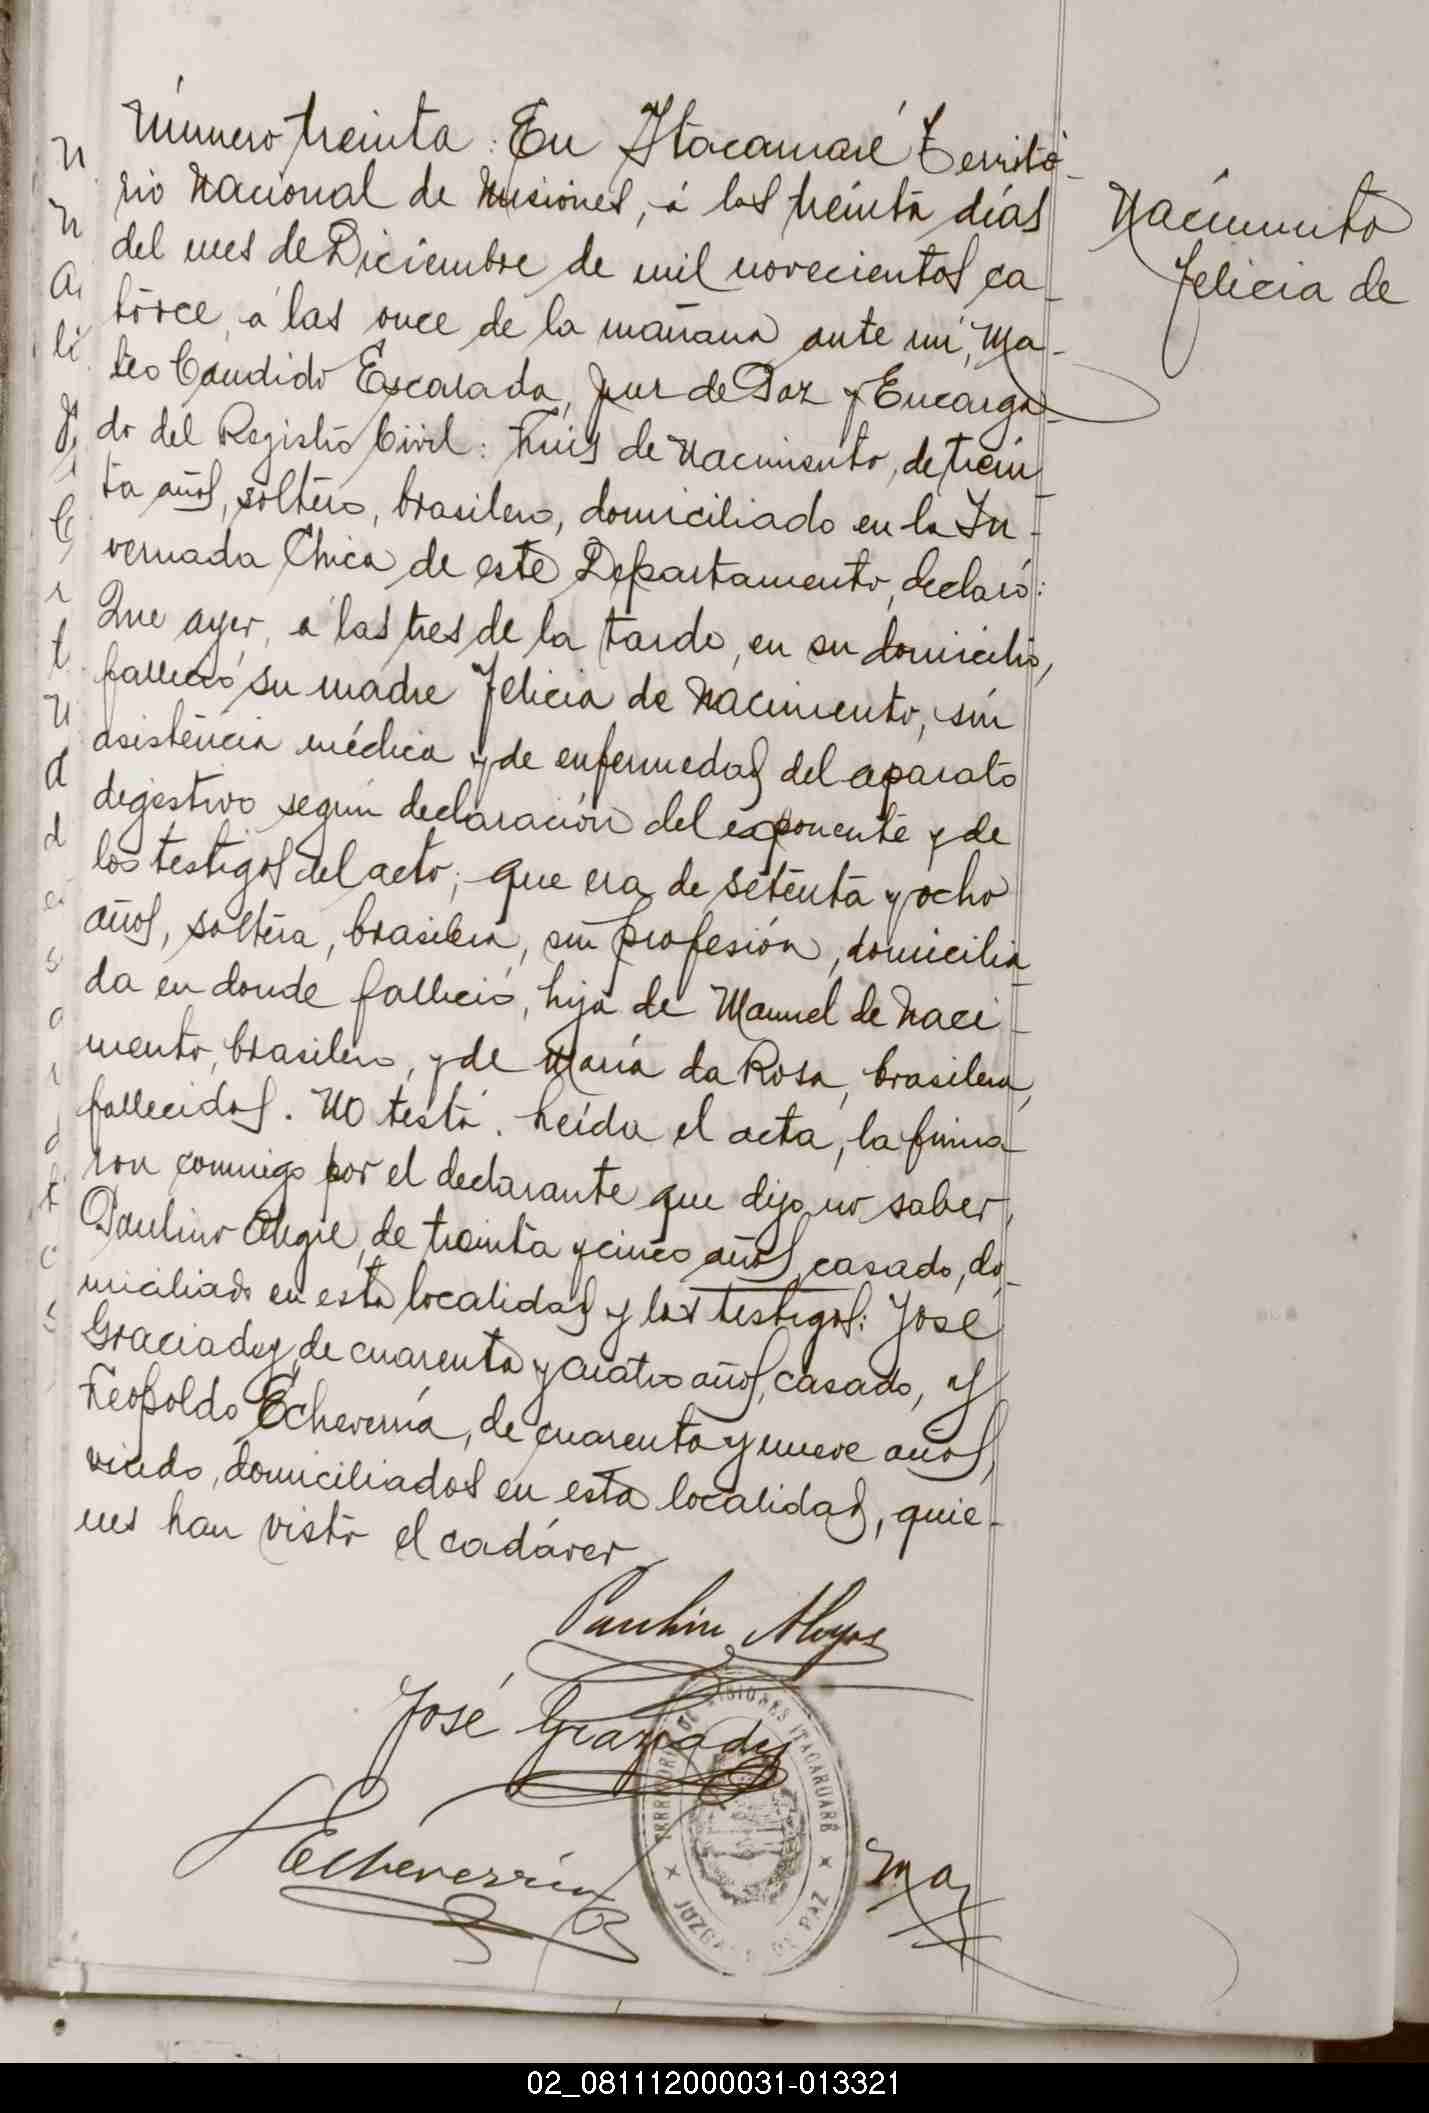 Nacimiento
Felicia de
Número treinta: En Itacaruaré Territo-
rio Nacional de Misiones, á los treinta días
del mes de Diciembre de mil novecientos ca-
torce, á las once de la mañana ante mí, Ma-
teo Candido Escalada, Juez de Paz y Encarga-
do del Registro Civil: Luis de Nacimiento, de trein-
ta años, soltero, brasilero, domiciliado en la In-
vernada Chica de este Departamento, declaró:
Que ayer, á las tres de la tarde, en su domicilio,
falleció su madre Felicia de Nacimiento, sin
asistencia médica y de enfermedad del aparato
digestivo según declaración del exponente y de
los testigos del acto; que era de setenta y ocho
años, soltera, brasilera, sin profesión, domicilia-
da en donde falleció, hija de Manuel de Naci-
mento, brasilero, y de María da Rosa, brasilera,
fallecidos. No testó. Leída el acta, la firma-
ron conmigo por el declarante que dijo no saber,
Paulino de treinta y cinco años, casado, do-
miciliado en esta localidad y los testigos: José
Graciadey, de cuarenta y cuatro años, casado, y
Leopoldo Echeverría, de cuarenta y nueve años,
viudo, domiciliados en esta localidad, quie-
nes han visto el cadáver
José Graziadey
Echeverría
TERRITORIO DE MISIONES ITACARUARÉ
JUZGADO DE PAZ
02_081112000031-013321